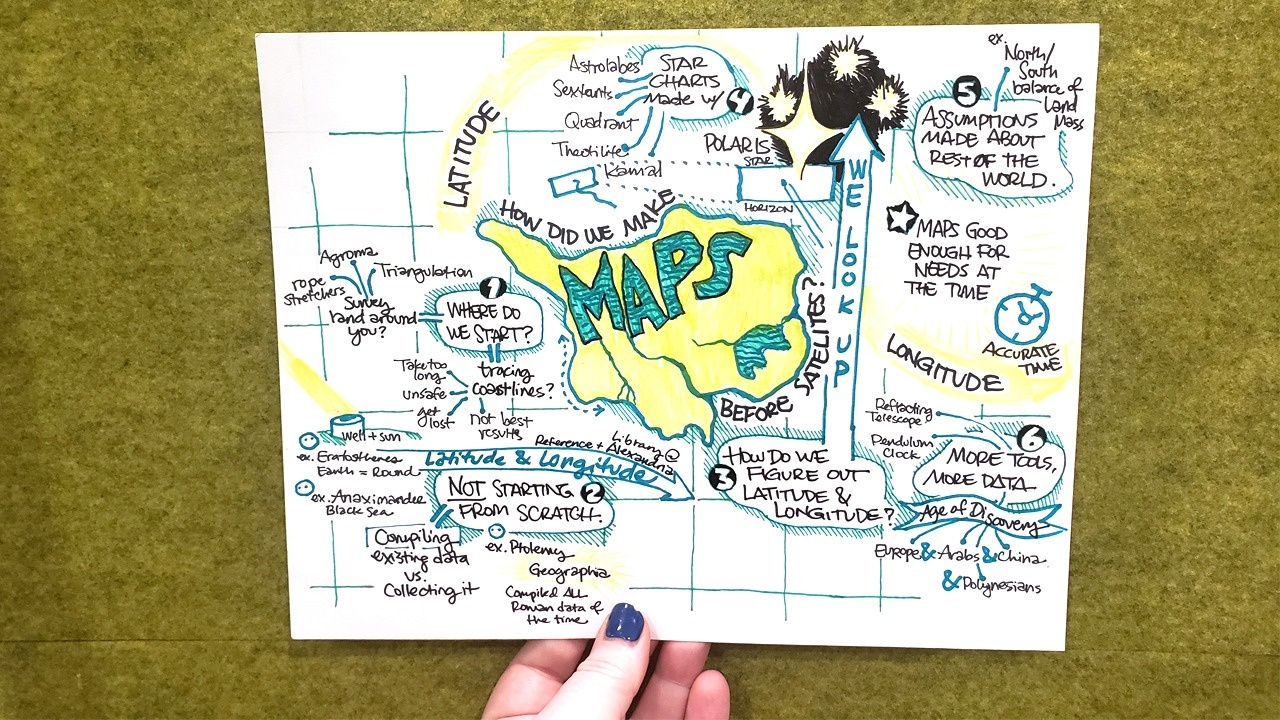 HOW DID WE MAKE
MAPS
BEFORE
SATELITES?
1
WHERE DO
WE START?
Survey
land around
you?
rope
stretchers
Agroma
Triangulation
tracing
coastlines?
Take too
long
unsafe
get
lost
not best
results
2
NOT STARTING
FROM SCRATCH.
Latitude & Longitude
Reference + Library @
Alexandria
well + sun
ex. Eratosthenes
Earth = Round
ex. Anaximander
Black Sea
Compiling
existing data
vs.
Collecting it
ex. Ptolemy
Geographia
Compiled ALL
Roman data of
the time
3
HOW DO WE
FIGURE OUT
LATITUDE &
LONGITUDE?
WE LOOK UP
LATITUDE
4
STAR
CHARTS
Made w/
Astrolabes
Sextants
Quadrant
Theotilife
Kamal
POLARIS
STAR
HORIZON
5
ASSUMPTIONS
MADE ABOUT
REST OF THE
WORLD.
ex.
North/
South
balance of
Land
Mass
MAPS GOOD
ENOUGH FOR
NEEDS AT
THE TIME
ACCURATE
TIME
LONGITUDE
6
MORE TOOLS,
MORE DATA
Refracting
Telescope
Pendulum
Clock
Age of Discovery
Europe & Arabs & China
& Polynesians